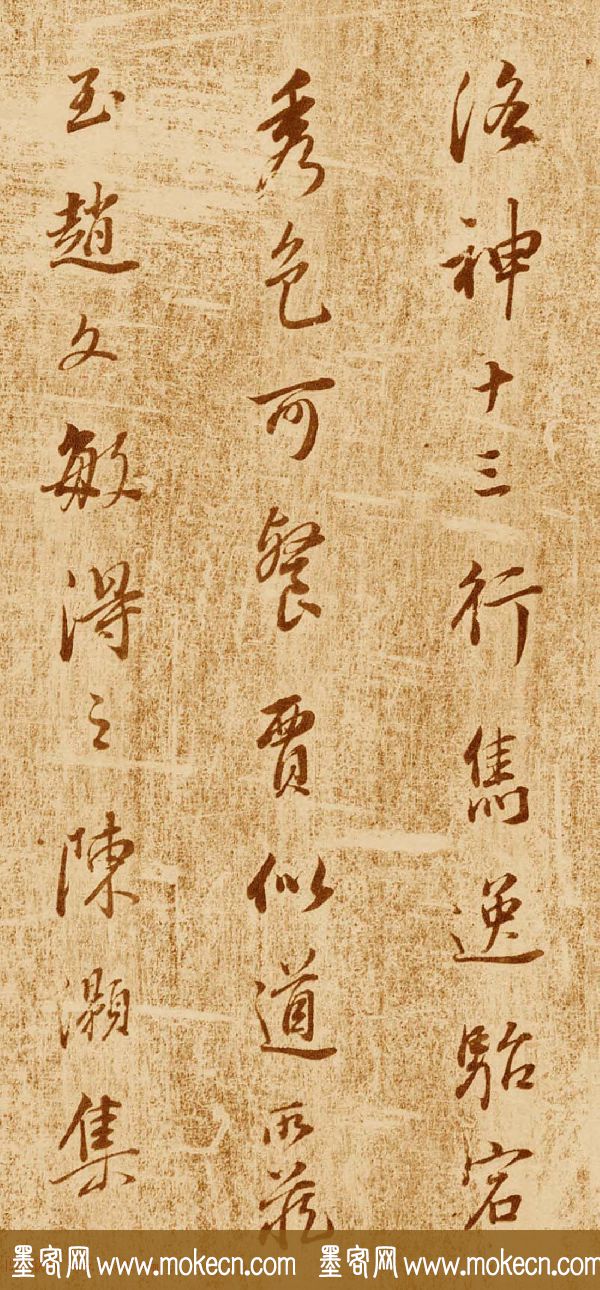 洛神十三行雋逸駘宕
秀色可餐賈似道所藏
玉趙文敏得之陳灝集
墨客网 www.mokecn.com 墨客网 www.mokecn.com